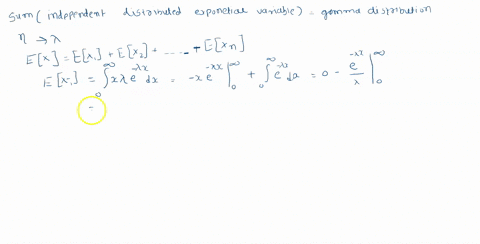 Sum( independent distributed exponential variable) = gamma distribution
n → λ
E[x] = E[x₁] + E[x₂] + ...... + E[xₙ]
E[x₁] = ∫₀^∞ xλe^{-λx} dx = -xe^{-λx}|₀^∞ + ∫₀^∞ e^{-λx} dx = 0 - e^{-λx}/λ |₀^∞
=